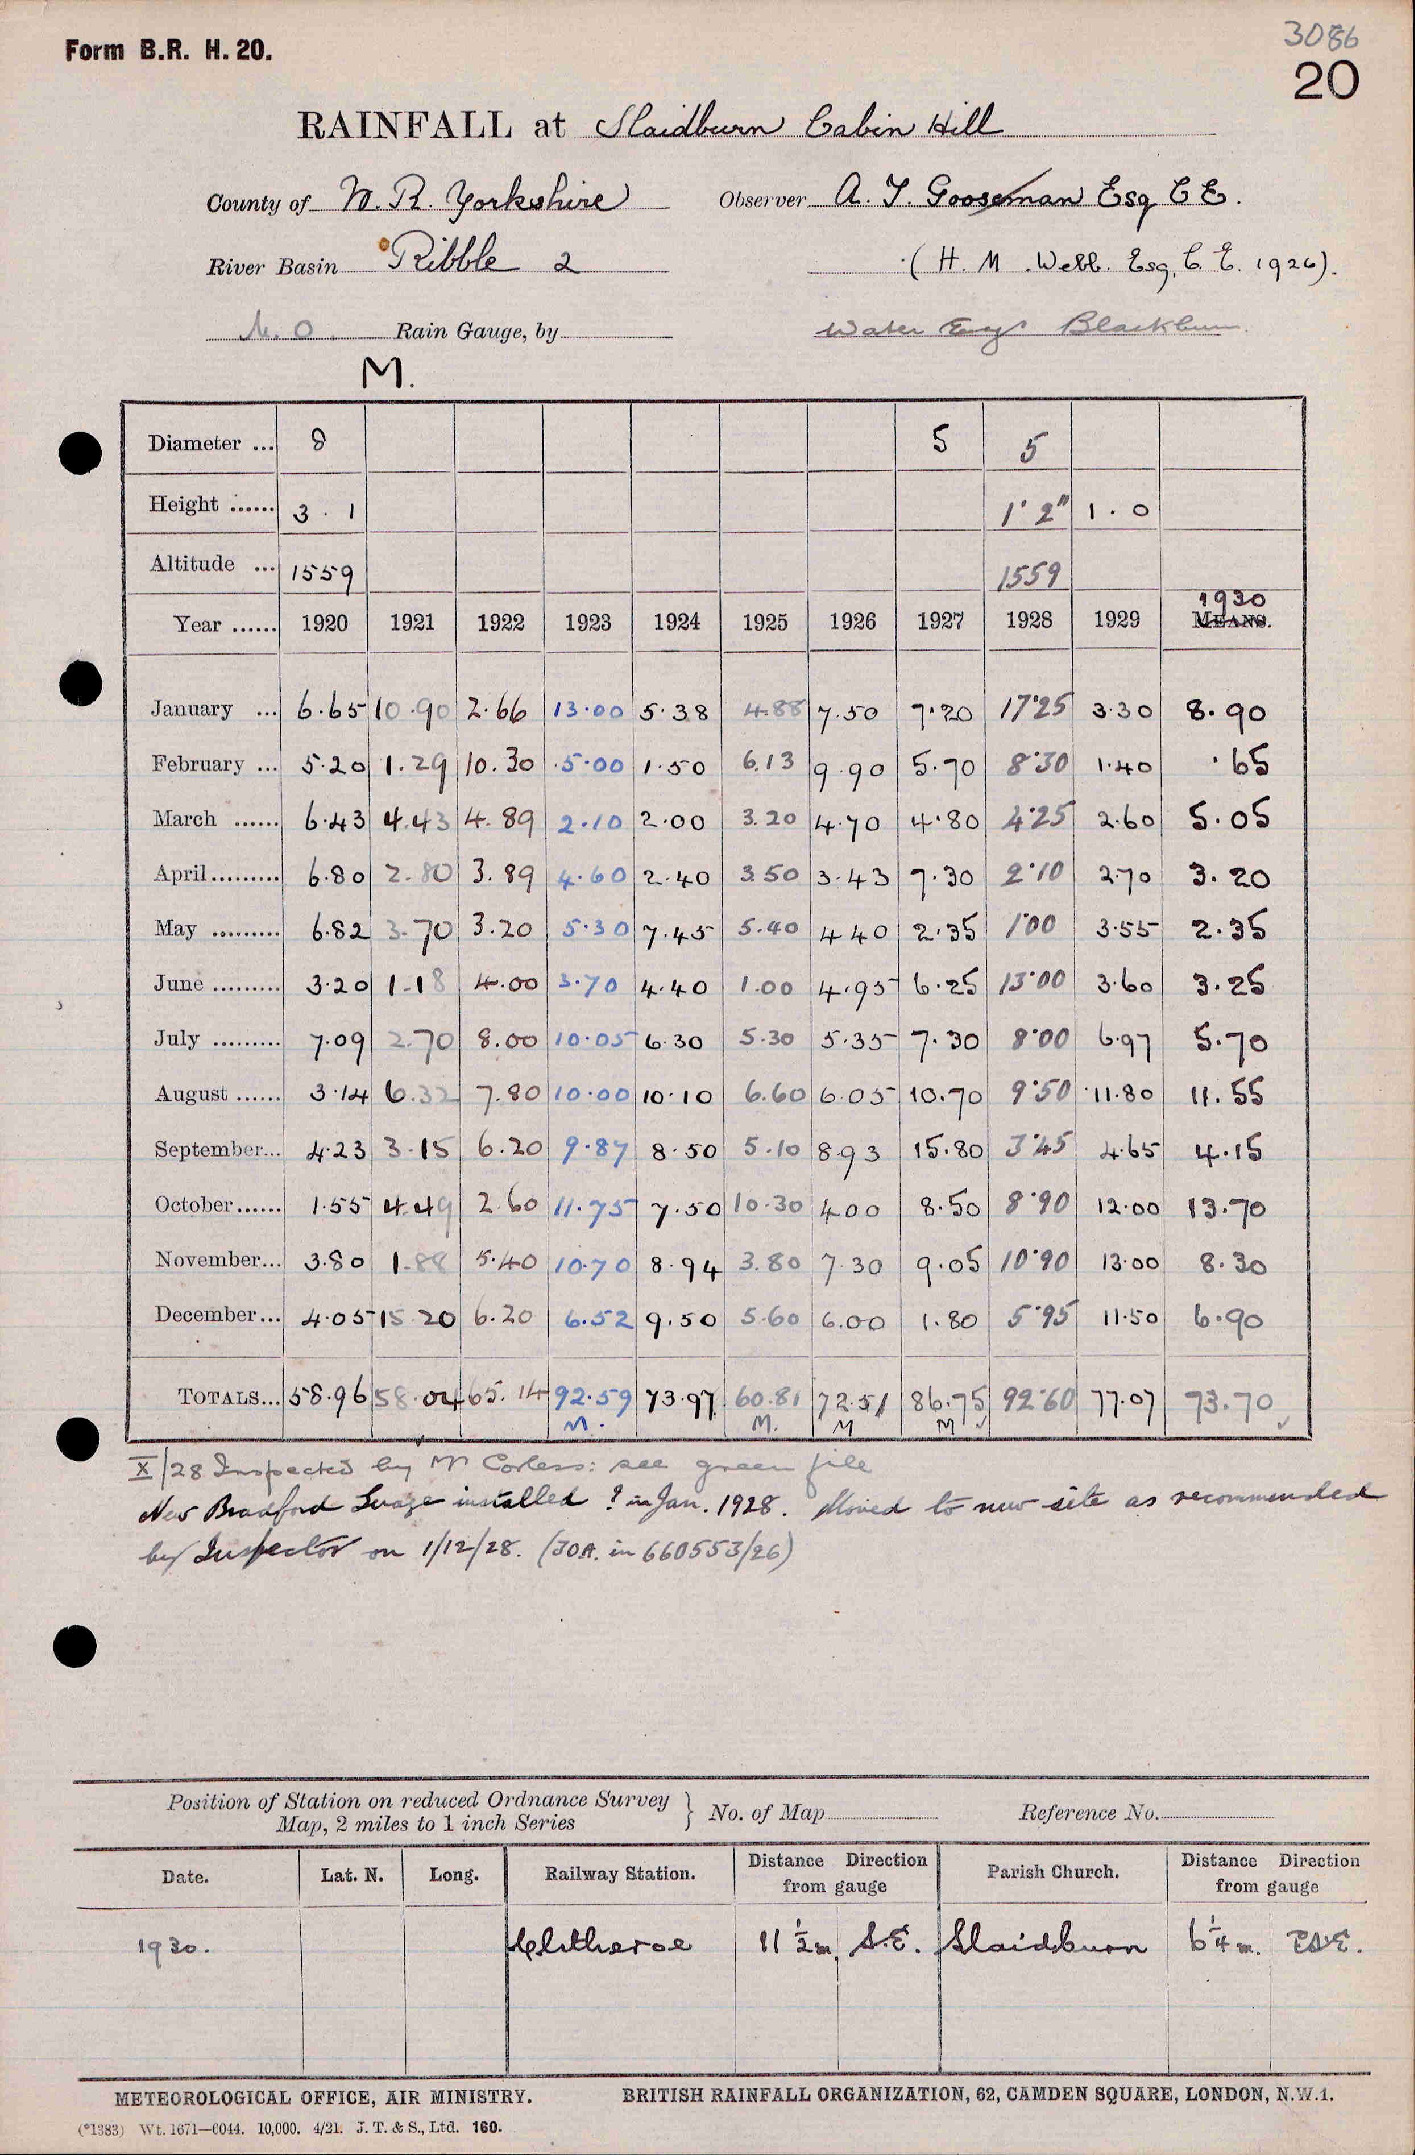 3086
Form B.R. H. 20.
20
RAINFALL at Slaidburn Cabin Hill
County of W. R. Yorkshire Observer A. T. Gooseman Esq C E.
River Basin Ribble 2 (H. M. Webb. Esq, C. E. 1926).
M.O. Rain Gauge, by Water Engr Blackburn.
M.
Diameter ... 8 5 5
Height ...... 3 . 1 1' 2" 1 . 0
Altitude ... 1559 1559
Year ...... 1920 1921 1922 1923 1924 1925 1926 1927 1928 1929 MEANS. 1930
January ... 6.65 10.90 2.66 13.00 5.38 4.88 7.50 7.20 17.25 3.30 8.90
February ... 5.20 1.29 10.30 5.00 1.50 6.13 9.90 5.70 8.30 1.40 .65
March ...... 6.43 4.43 4.89 2.10 2.00 3.20 4.70 4.80 4.25 2.60 5.05
April ......... 6.80 2.80 3.89 4.60 2.40 3.50 3.43 7.30 2.10 2.70 3.20
May ......... 6.82 3.70 3.20 5.30 7.45 5.40 4.40 2.35 1.00 3.55 2.35
June ......... 3.20 1.18 4.00 3.70 4.40 1.00 4.95 6.25 13.00 3.60 3.25
July ......... 7.09 2.70 8.00 10.05 6.30 5.30 5.35 7.30 8.00 6.97 5.70
August ...... 3.14 6.32 7.80 10.00 10.10 6.60 6.05 10.70 9.50 11.80 11.55
September... 4.23 3.15 6.20 9.87 8.50 5.10 8.93 15.80 3.45 4.65 4.15
October...... 1.55 4.49 2.60 11.75 7.50 10.30 4.00 8.50 8.90 12.00 13.70
November... 3.80 1.88 5.40 10.70 8.94 3.80 7.30 9.05 10.90 13.00 8.30
December... 4.05 15.20 6.20 6.52 9.50 5.60 6.00 1.80 5.95 11.50 6.90
TOTALS... 58.96 58.04 65.14 92.59 73.97 60.81 72.51 86.75 92.60 77.07 73.70
M. M. M M
X/28 Inspected by Mr Corless: see green file
New Bradford Guage installed ? in Jan. 1928. Moved to new site as recommended
by Inspector on 1/12/28. (30A. in 660553/26)
Position of Station on reduced Ordnance Survey Map, 2 miles to 1 inch Series } No. of Map Reference No.
Date. Lat. N. Long. Railway Station. Distance Direction from gauge Parish Church. Distance Direction from gauge
1930. Clitheroe 11 1/2 m. S.E. Slaidburn 6 1/4 m. ESE.
METEOROLOGICAL OFFICE, AIR MINISTRY. BRITISH RAINFALL ORGANIZATION, 62, CAMDEN SQUARE, LONDON, N.W.1.
(*1383) Wt. 1671—0044. 10,000. 4/21. J. T. & S., Ltd. 160.